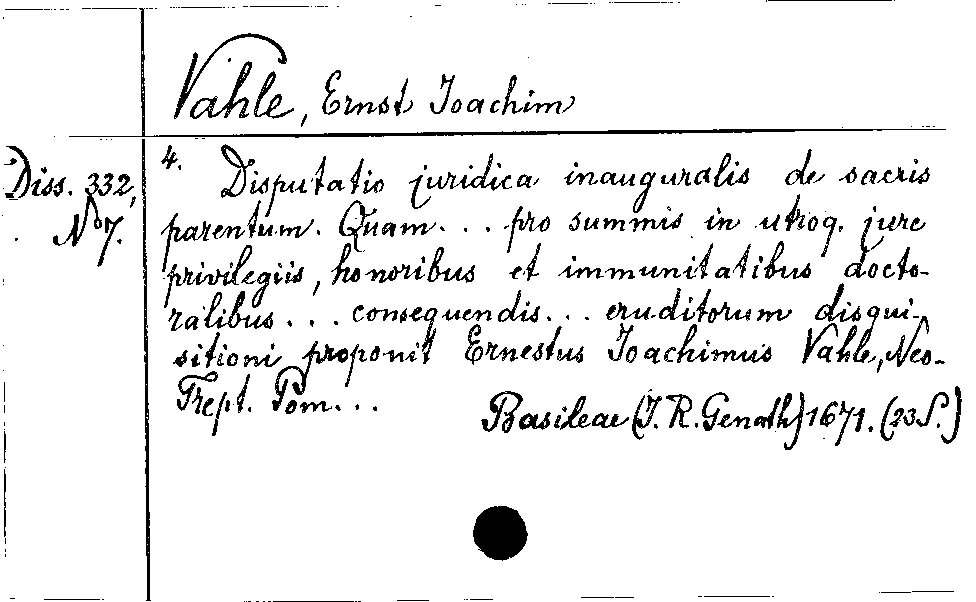 Vahle, Ernst Joachim
Diss. 332,
No 7.
4. Disputatio juridica inauguralis de sacris
parentum. Quam... pro summis in utroq. jure
privilegiis, honoribus et immunitatibus docto-
ralibus... consequendis... eruditorum disqui-
sitioni proponit Ernestus Joachimus Vahle, Neo-
Trept. Pom...
Basileae (J. R. Genath) 1671. (23 S.)